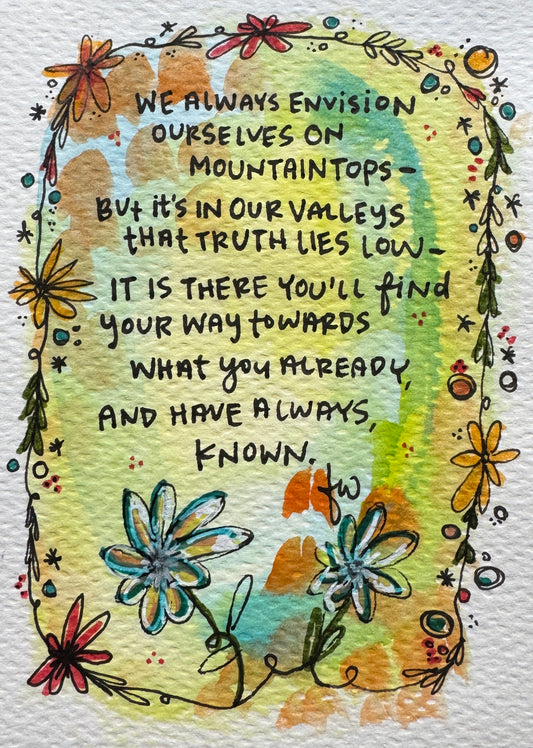 WE ALWAYS ENVISION
OURSELVES ON
MOUNTAINTOPS-
BUt it's IN OUR VALLEYS
tHAt TRUTH LIES LOW-
IT IS THERE YOU'LL find
YOUR WAY toWARDS
WHAt you ALREADY,
AND HAVE ALWAYS,
KNOWN.
fw